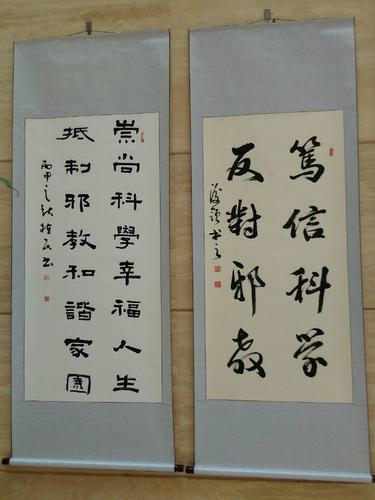 崇尚科學幸福人生
抵制邪教和諧家園
丙申之秋 书
篤信科学
反對邪教
书之